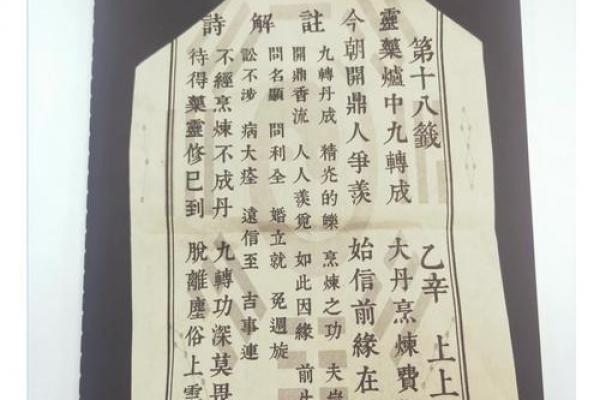 註解詩
第十八籤 乙辛 上上
靈藥爐中九轉成 大丹烹煉費
今朝開鼎人爭羨 始信前緣在
九轉丹成 精光的皪 烹煉之功 夫
開鼎香流 人人羨覓 如此因緣 前
問名顯 問利全 婚立就 冤週旋
訟不涉 病大痊 遠信至 吉事連
不經烹煉不成丹 九轉功深莫畏
待得藥靈修已到 脫離塵俗上